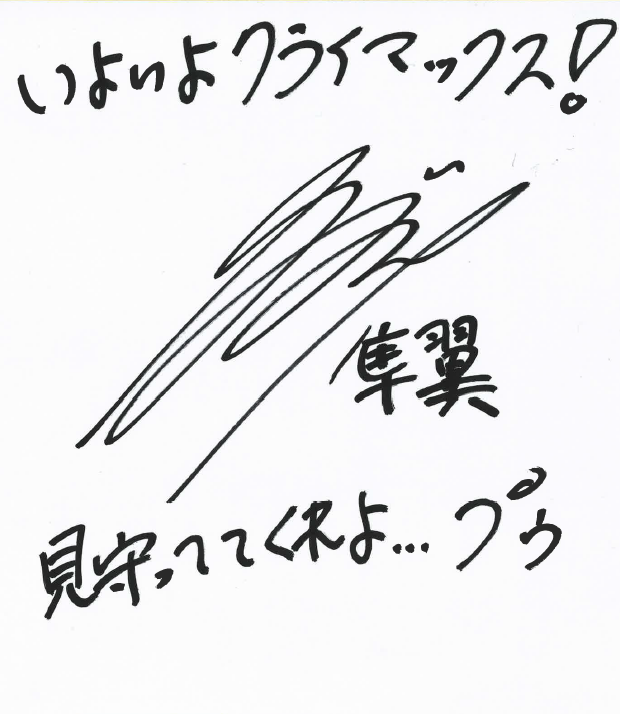 いよいよクライマックス!
隼翼
見守っててくれよ…プゥ